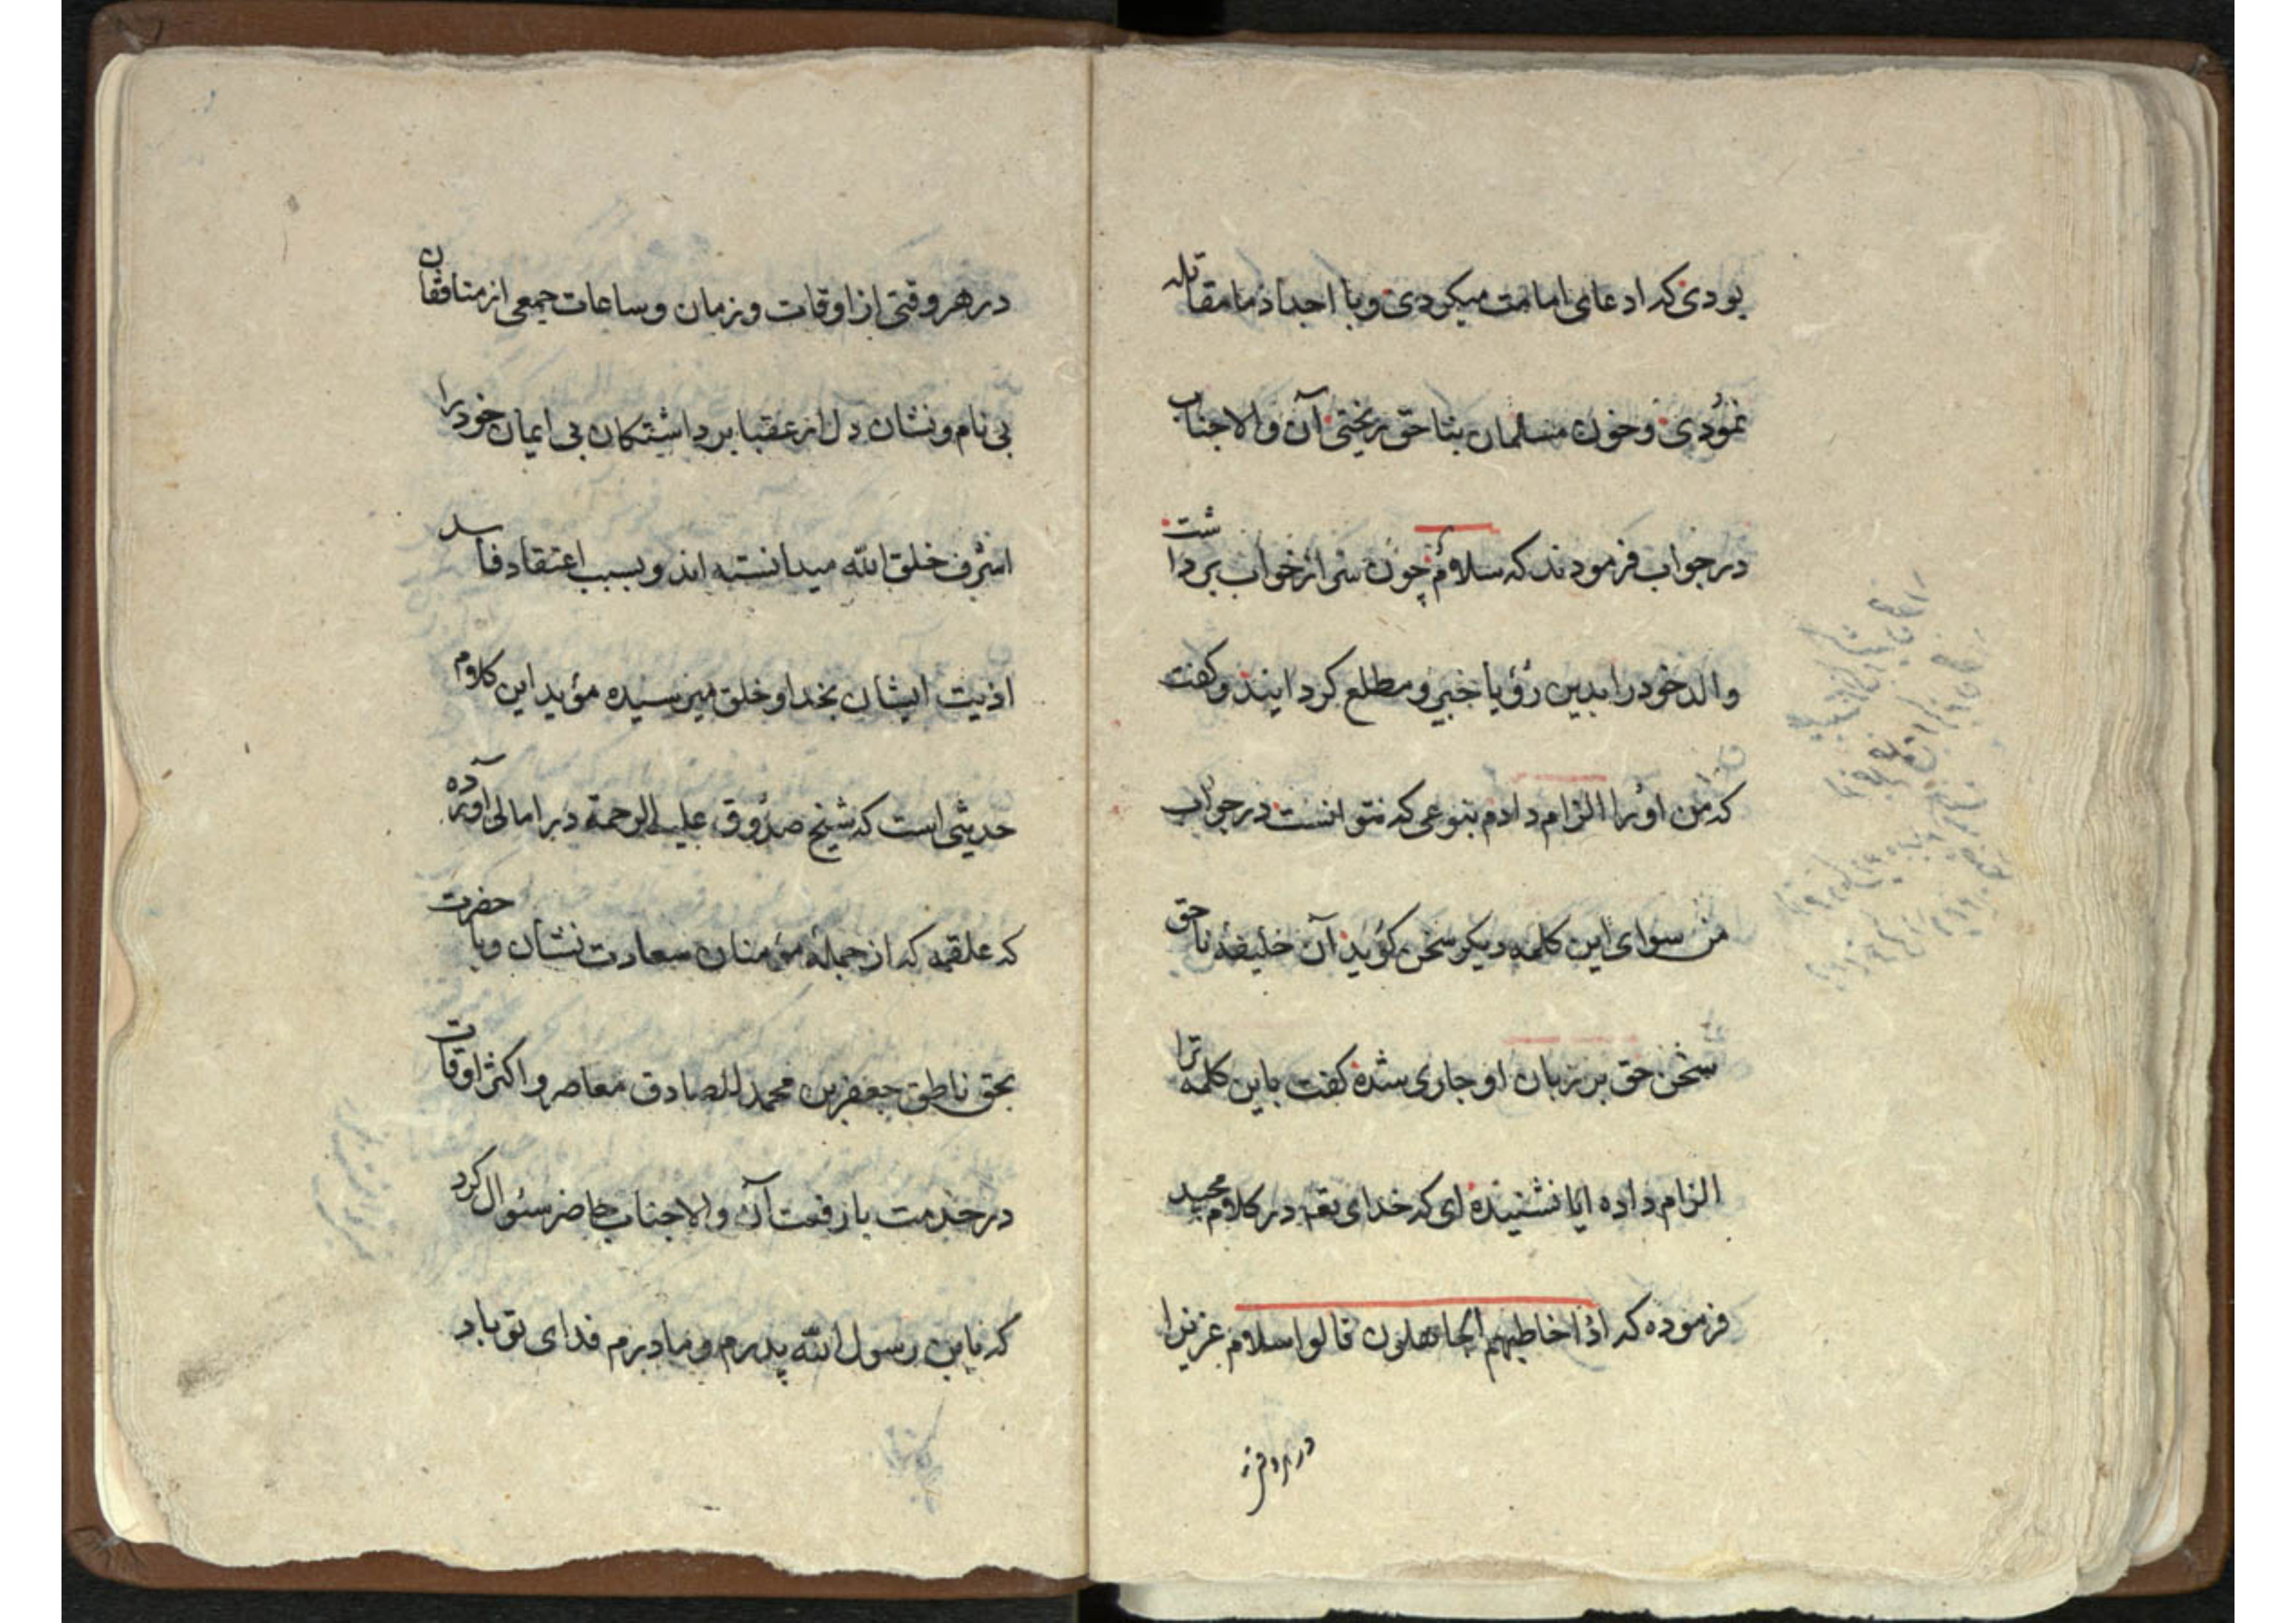 بودی که ادعای امامت میکردی و با اجداد ما مقاتله
نمودی و خون مسلمان بناحق ریختی آن والاجناب
در جواب فرمودند که سلاماً چون سر از خواب برداشت
والد خود را بدین رؤیا خبیر و مطلع کردانیند و کفت
که من او را الزام دادم بنوعی که نتوانست در جواب
من سوای این کلمه دیکر سخن کوید آن خلیفهٔ ناحق
سخن حق بر زبان او جاری شده کفت باین کلمه ترا
الزام داده ایا نشنیده ای که خدای تعه در کلام مجید
فرموده که اذا خاطبهم الجاهلون قالوا سلام عزیزا
در هر وقتی
در هر وقتی از اوقات و زمان و ساعات جمعی از منافقان
بی نام و نشان دل از عقبا برداشتکان بی ایمان خود را
اشرف خلق الله میدانسته اند و بسبب اعتقاد فاسد
اذیت ایشان بخدا و خلق میرسیده مؤید این کلام
حدیثی است که شیخ صدوق علیه الرحمة در امالی آورده
که علقمه که از جملهٔ مؤمنان سعادت نشان و با حضرت
بحق ناطق جعفر بن محمد الصادق معاصر و اکثر اوقات
در خدمت با رفعت آن والاجناب حاضر سئوال کرد
که یابن رسول الله پدرم و مادرم فدای تو باد